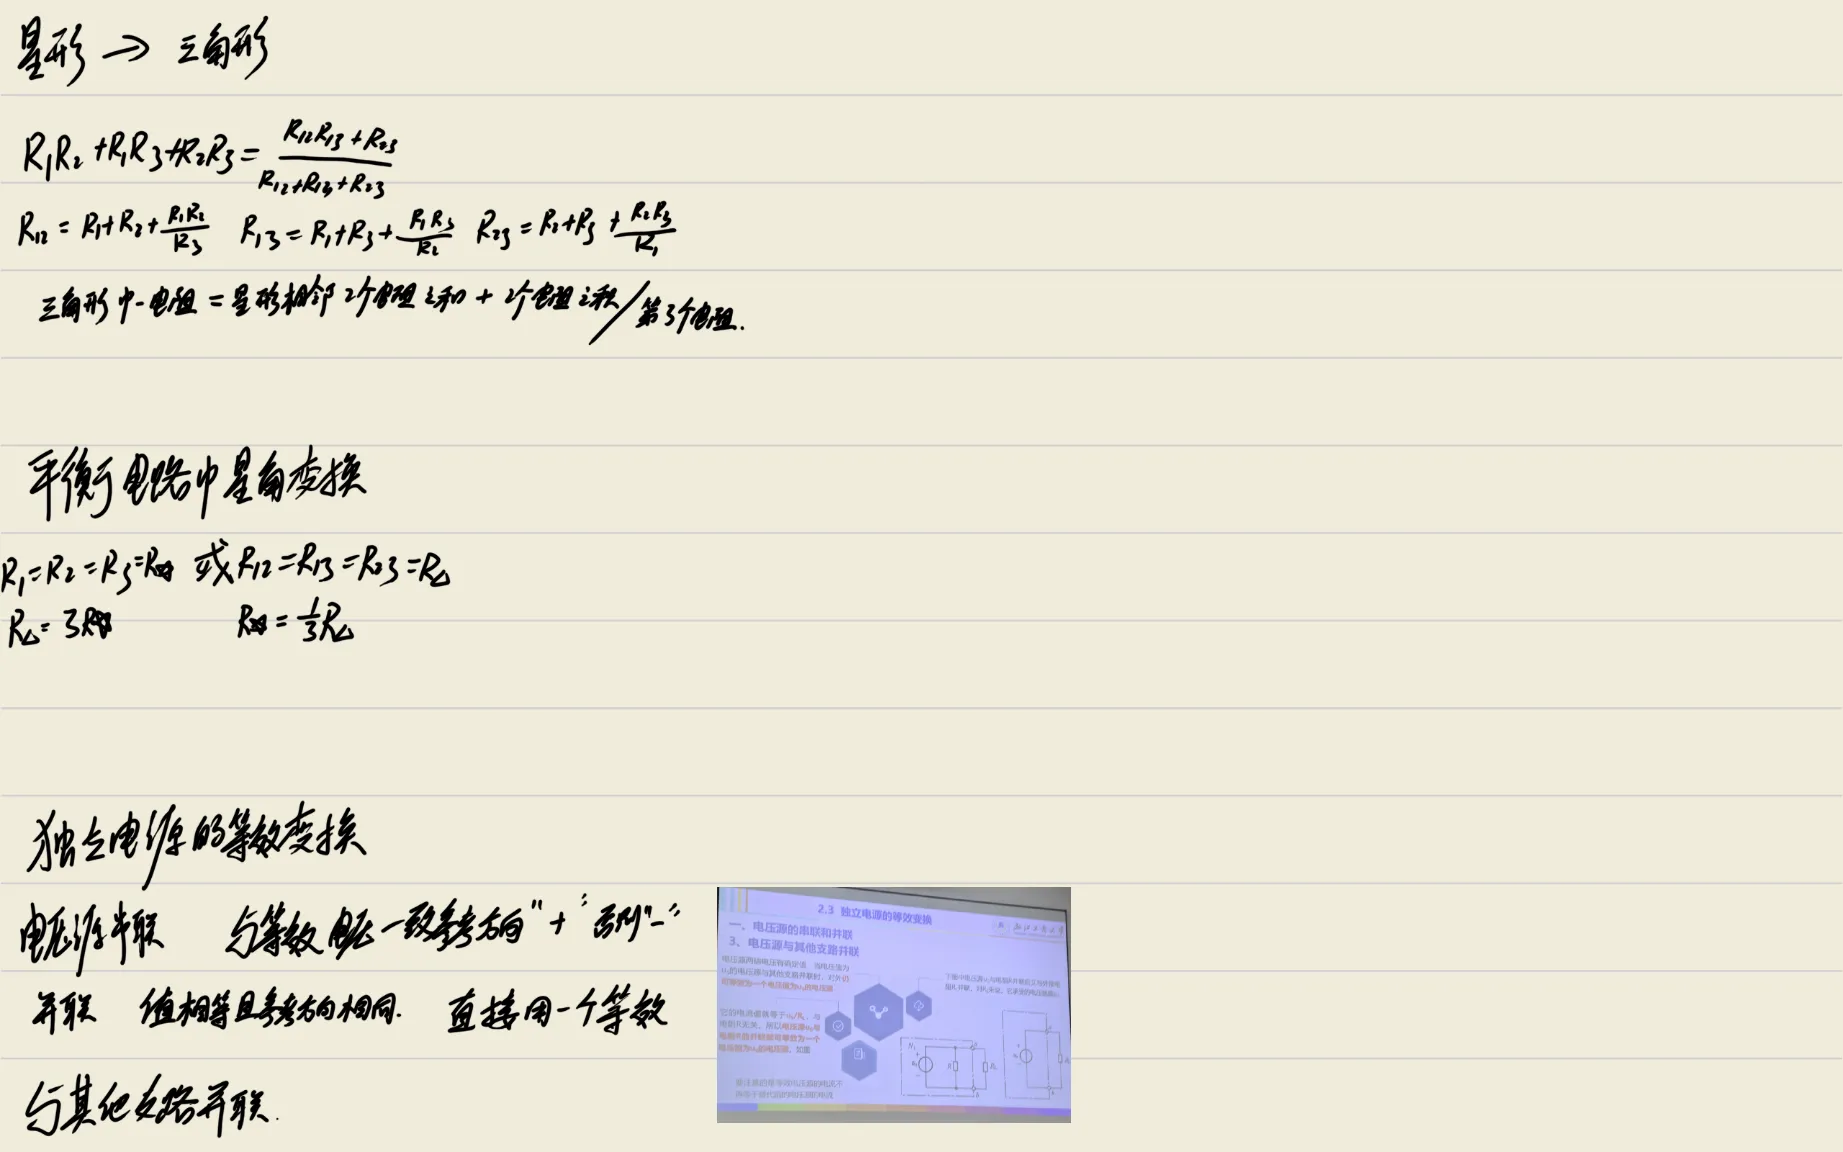 星形 → 三角形
R₁R₂+R₁R₃+R₂R₃=(R₁₂R₁₃+R₂₃)/(R₁₂+R₁₃+R₂₃)
R₁₂=R₁+R₂+R₁R₂/R₃ R₁₃=R₁+R₃+R₁R₃/R₂ R₂₃=R₂+R₃+R₂R₃/R₁
三角形中一电阻=星形相邻2个电阻之和+2个电阻之积/第3个电阻.
平衡电路中星角变换
R₁=R₂=R₃=R 或 R₁₂=R₁₃=R₂₃=R△
R△=3R R=1/3R△
独立电源的等效变换
电压源串联 与等效电压一致参考方向"+" 否则"-"
并联 值相等且参考方向相同. 直接用一个等效
与其他支路并联.
2.3 独立电源的等效变换
一、电压源的串联和并联
3、电压源与其他支路并联